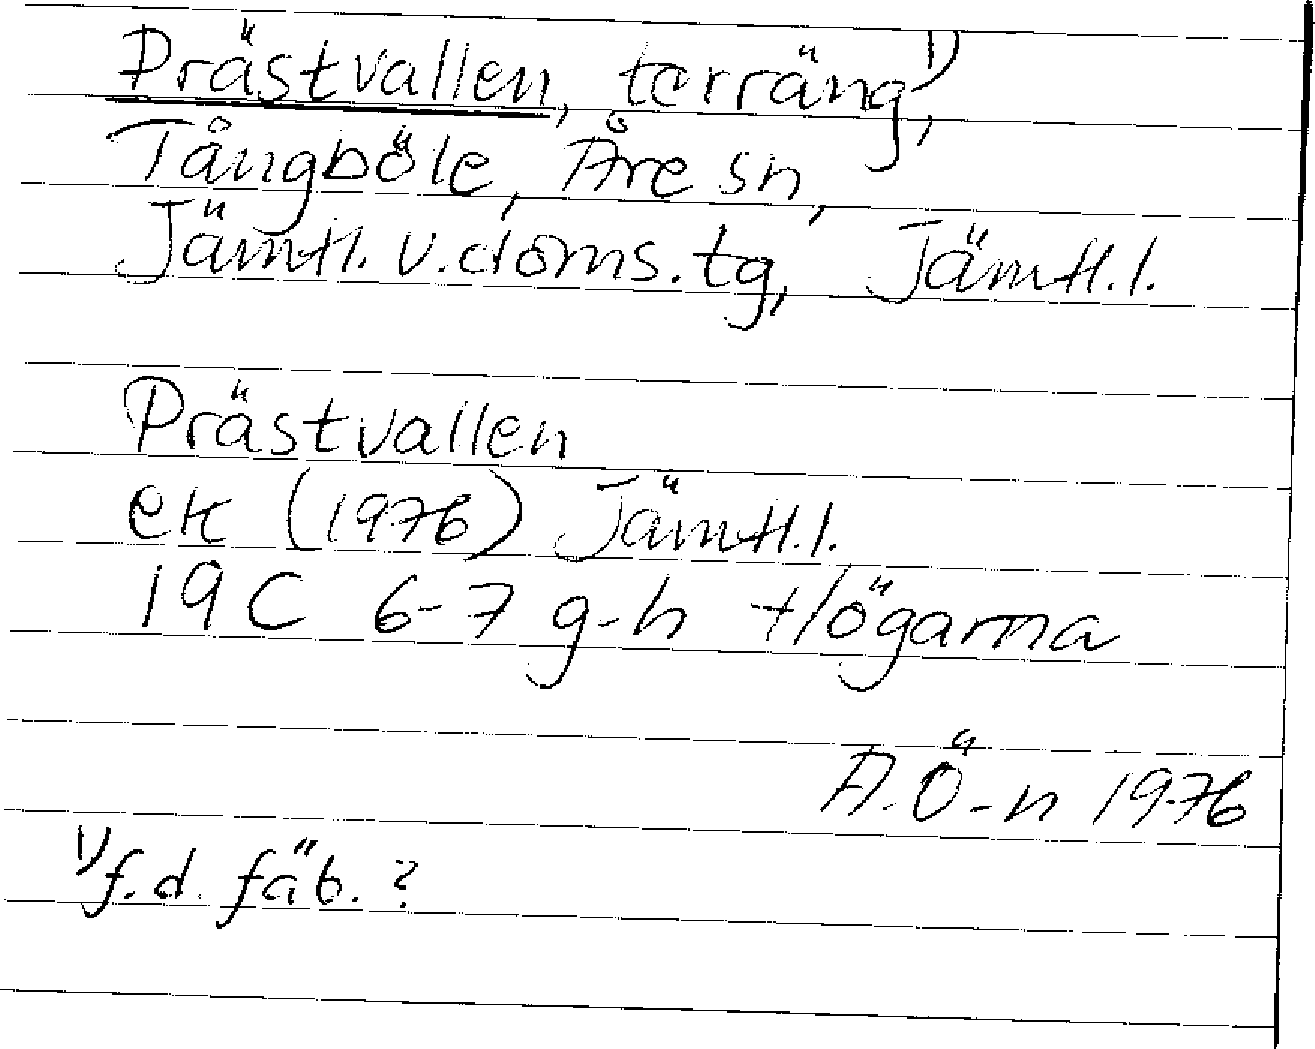 Prästvallen, terräng,1)
Tångböle, Åre sn,
Jämtl. v. doms. tg, Jämtl. l.
Prästvallen
ek (1976) Jämtl. l.
19C 6-7 g-h Högarna
A. Ö-n 1976
1) f.d. fäb. ?